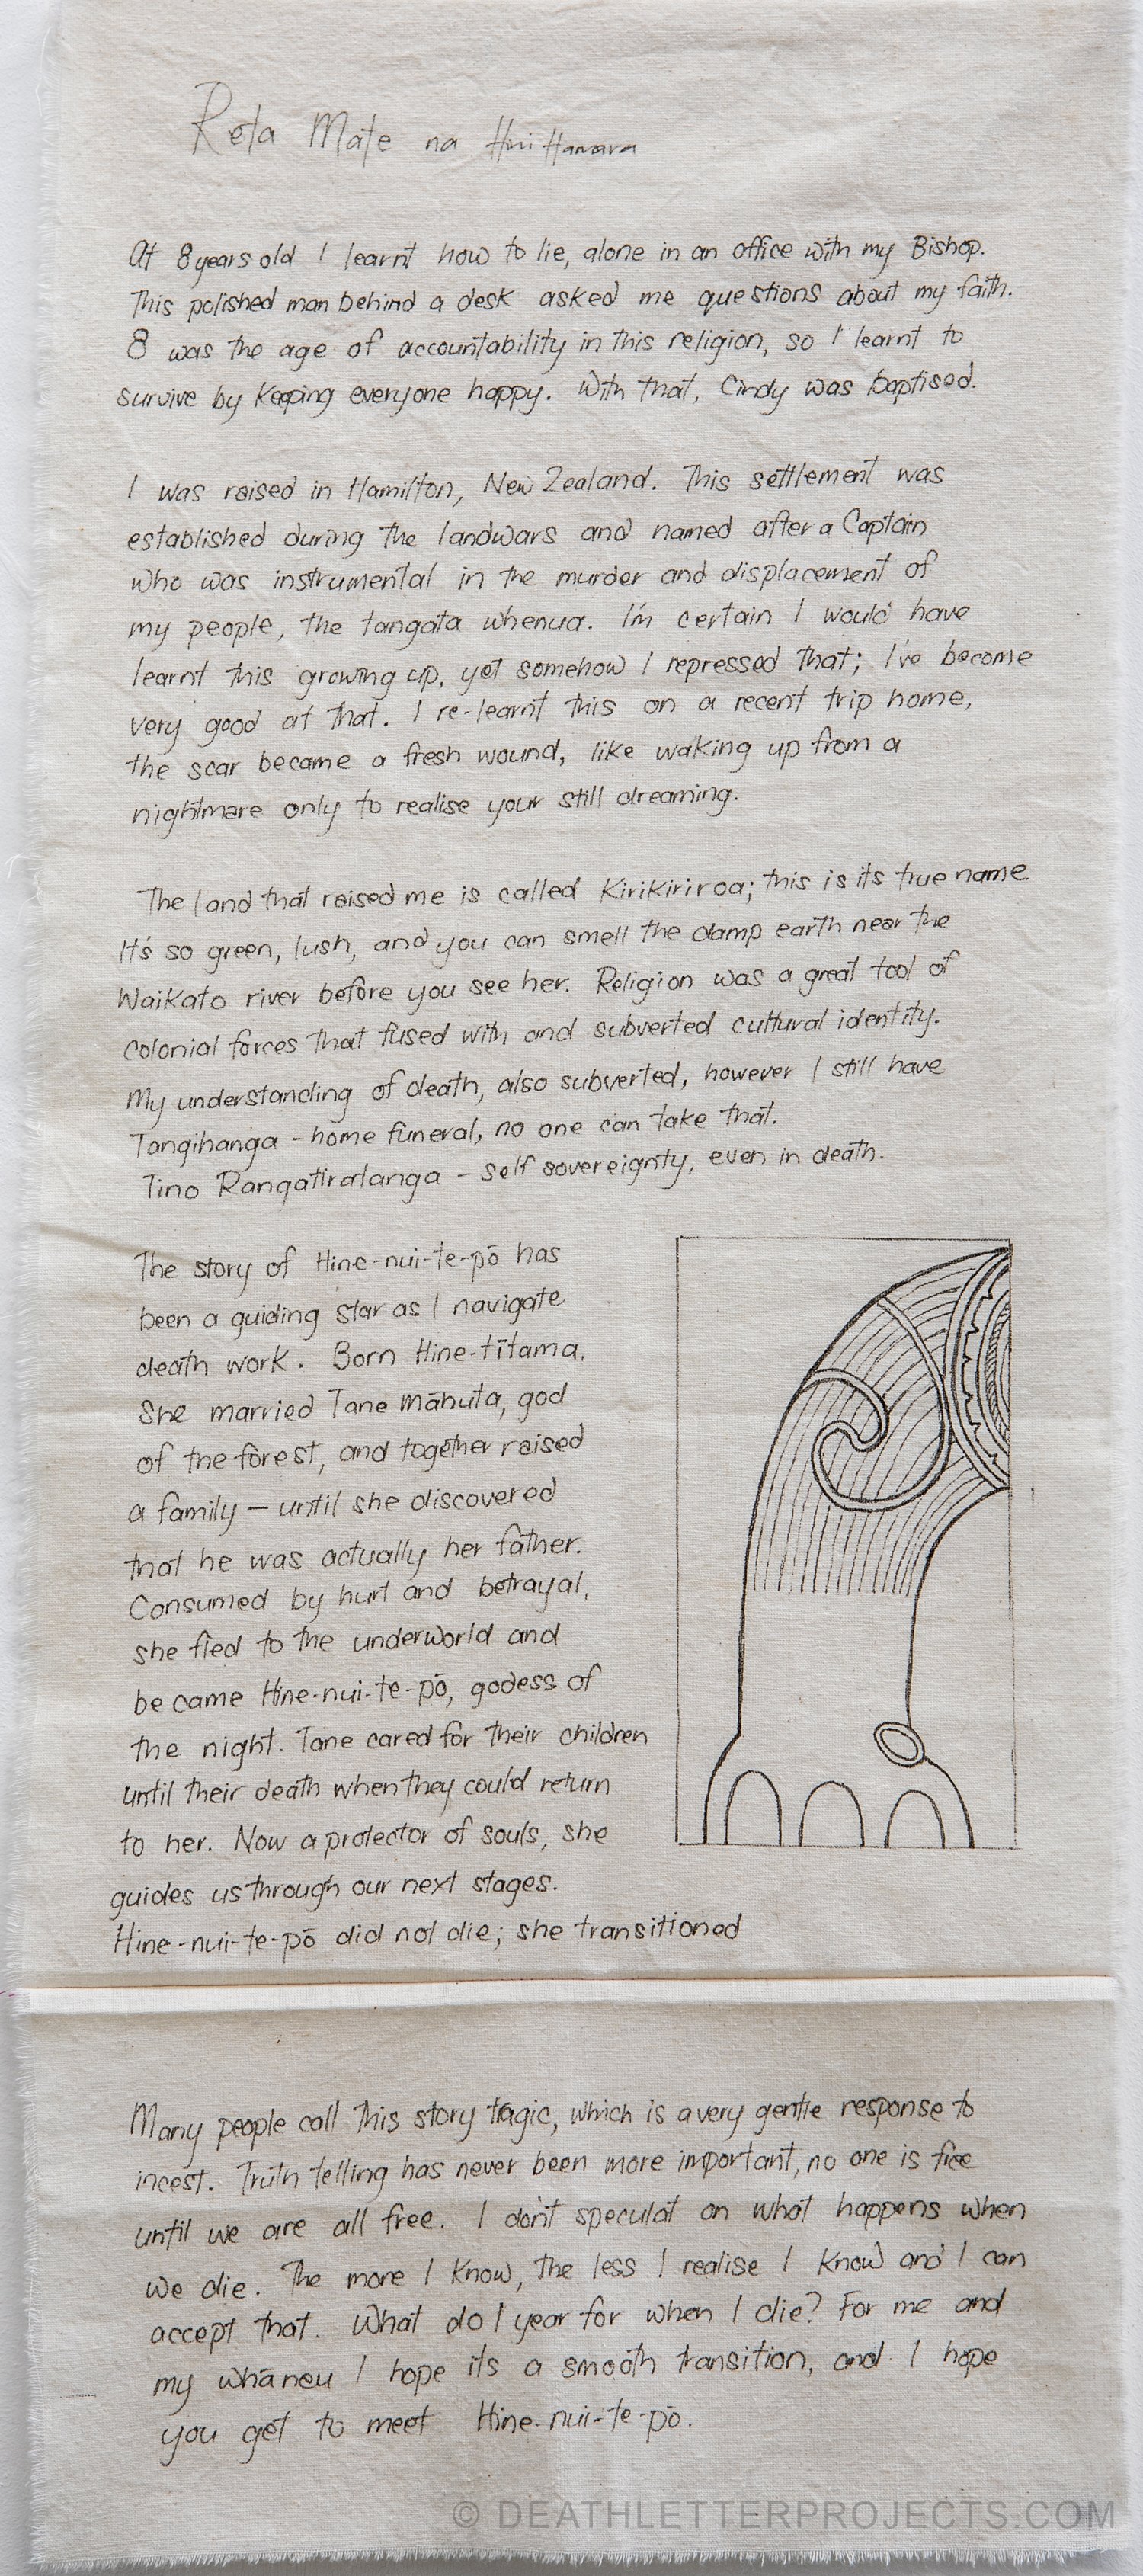 Reta Mate na Hini Hanara
At 8 years old I learnt how to lie, alone in an office with my Bishop.
This polished man behind a desk asked me questions about my faith.
8 was the age of accountability in this religion, so I learnt to
survive by keeping everyone happy. With that, Cindy was baptised.
I was raised in Hamilton, New Zealand. This settlement was
established during the landwars and named after a Captain
who was instrumental in the murder and displacement of
my people, the tangata whenua. I'm certain I would have
learnt this growing up, yet somehow I repressed that; I've become
very good at that. I re-learnt this on a recent trip home,
the scar became a fresh wound, like waking up from a
nightmare only to realise your still dreaming.
The land that raised me is called Kirikiriroa; this is its true name
It's so green, lush, and you can smell the damp earth near the
Waikato river before you see her. Religion was a great tool of
colonial forces that fused with and subverted cultural identity.
My understanding of death, also subverted, however I still have
Tangihanga - home funeral, no one can take that.
Tino Rangatiratanga - self sovereignty, even in death.
The story of Hine-nui-te-pō has
been a guiding star as I navigate
death work. Born Hine-tītama,
She married Tane māhuta, god
of the forest, and together raised
a family - until she discovered
that he was actually her father.
Consumed by hurt and betrayal,
she fled to the underworld and
became Hine-nui-te-pō, godess of
the night. Tane cared for their children
until their death when they could return
to her. Now a protector of souls, she
guides us through our next stages.
Hine-nui-te-pō did not die; she transitioned
Many people call this story tragic, which is a very gentle response to
incest. Truth telling has never been more important, no one is free
until we are all free. I don't speculat on what happens when
we die. The more I know, the less I realise I know and I can
accept that. What do I year for when I die? For me and
my whāneu I hope its a smooth transition, and I hope
you get to meet Hine-nui-te-pō.
© DEATHLETTERPROJECTS.COM